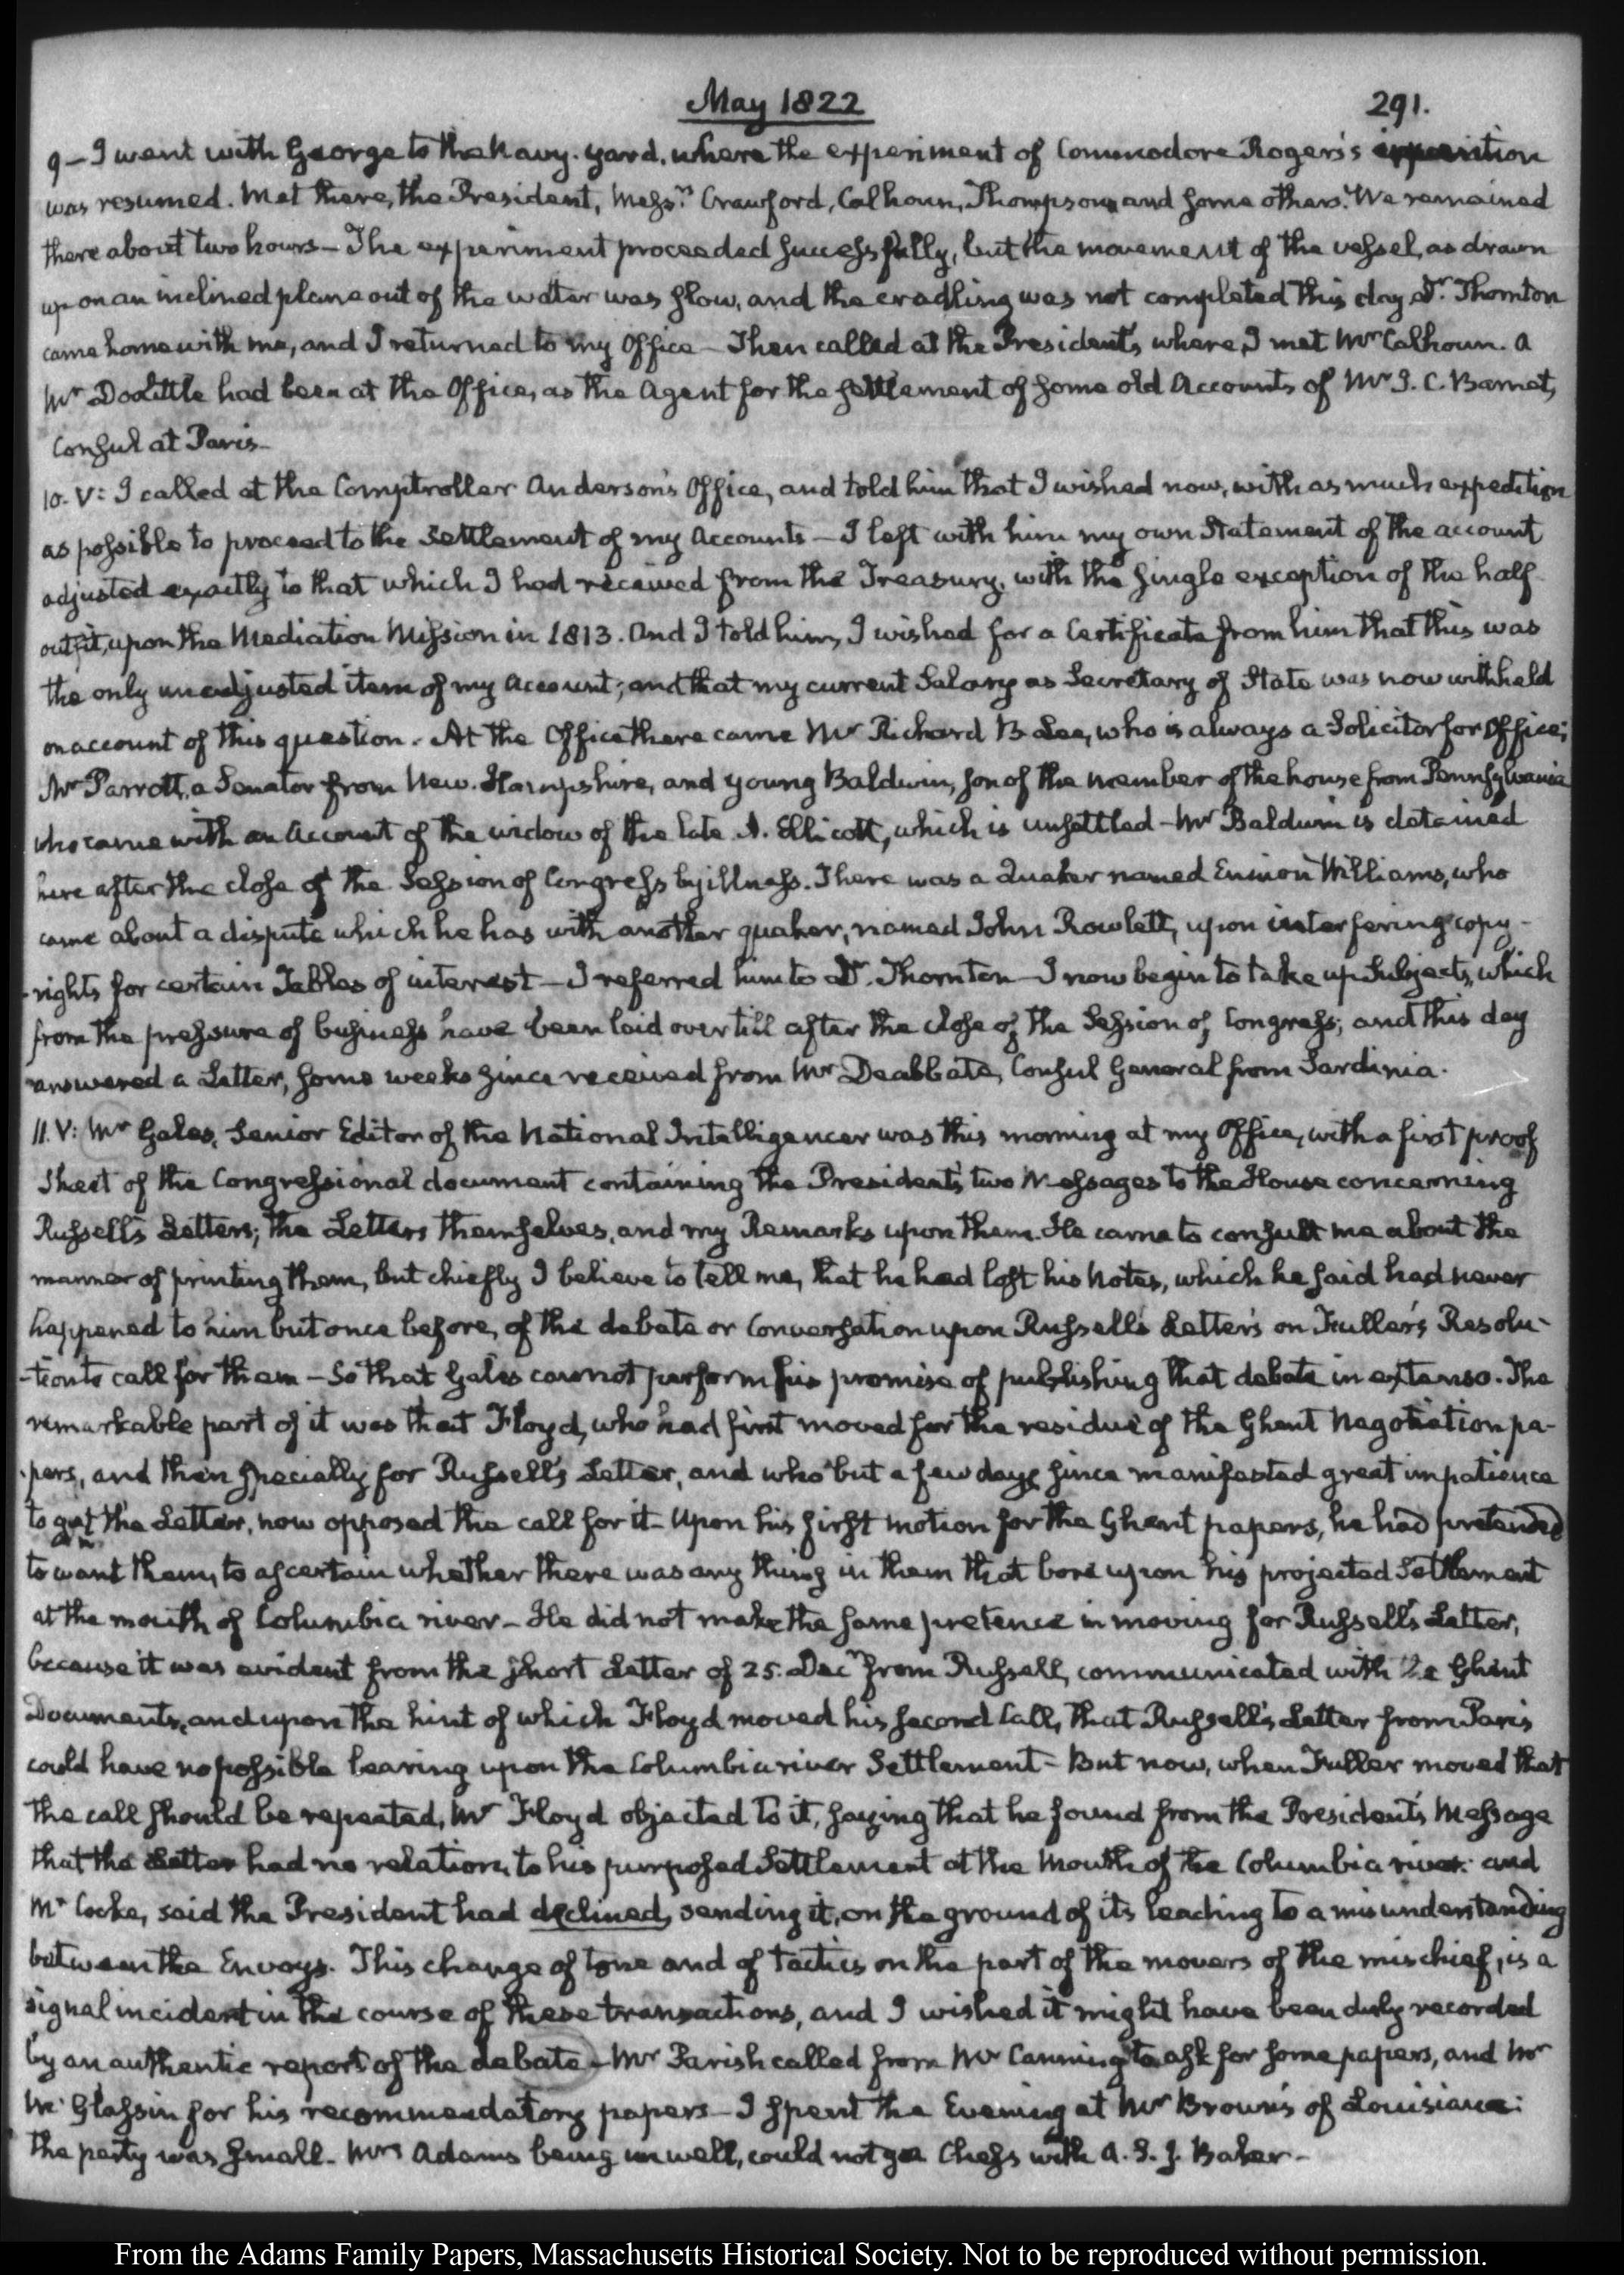 May 1822
291.
9 – I went with George to the Navy-yard, where the experiment of Commodore Rogers's
was resumed. Met there, the President, Messrs. Crawford, Calhoun, Thompson and some others. We remained
there about two hours – The experiment proceeded successfully, but the movement of the vessel, as drawn
up on an inclined plane out of the water was slow, and the cradling was not completed this day. Dr. Thornton
came home with me, and I returned to my Office – Then called at the President's, where I met Mr Calhoun. A
Mr Doolittle had been at the Office, as the Agent for the settlement of some old Accounts of Mr I. C. Barnet,
Consul at Paris –
10. V: I called at the Comptroller Anderson's Office, and told him that I wished now, with as much expedition
as possible to proceed to the settlement of my Accounts – I left with him my own Statement of the account
adjusted exactly to that which I had received from the Treasury, with the single exception of the half
outfit, upon the Mediation Mission in 1813. And I told him, I wished for a Certificate from him that this was
the only unadjusted item of my Account; and that my current Salary as Secretary of State was now withheld
on account of this question. At the Office there came Mr Richard B Lee, who is always a Solicitor for Office;
Mr Parrott, a Senator from New-Hampshire, and young Baldwin, son of the member of the house from Pennsylvania
who came with an Account of the widow of the late A. Ellicott, which is unsettled – Mr Baldwin is detained
here after the close of the Session of Congress by illness. There was a Quaker named Ennion Williams, who
came about a dispute which he has with another quaker, named John Rowlett, upon interfering copy-
-rights for certain Tables of interest – I referred him to Dr. Thornton – I now begin to take up Subjects, which
from the pressure of business have been laid over till after the close of the Session of Congress; and this day
answered a Letter, some weeks since received from Mr Deabbate, Consul General from Sardinia.
11. V: Mr Gales, Senior Editor of the National Intelligencer was this morning at my Office, with a first proof
sheet of the Congressional document containing the President's two Messages to the House concerning
Russell's Letters; the Letters themselves, and my Remarks upon them. He came to consult me about the
manner of printing them, but chiefly I believe to tell me, that he had lost his Notes, which he said had never
happened to him but once before, of the debate or Conversation upon Russell's Letters on Fuller's Resolu-
-tion to call for them – So that Gales cannot perform his promise of publishing that debate in extenso. The
remarkable part of it was that Floyd, who had first moved for the residue of the Ghent Negotiation pa-
-pers, and then specially for Russell's Letter, and who but a few days since manifested great impatience
to get the Letter, now opposed the call for it – Upon his first motion for the Ghent papers, he had pretended
to want them, to ascertain whether there was any thing in them that bore upon his projected Settlement
at the mouth of Columbia river – He did not make the same pretence in moving for Russell's Letter,
because it was evident from the short Letter of 25. Decr from Russell, communicated with the Ghent
Documents, and upon the hint of which Floyd moved his second Call, that Russell's Letter from Paris
could have no possible bearing upon the Columbia river Settlement – But now, when Fuller moved that
the call should be repeated, Mr Floyd objected to it, saying that he found from the President's Message
that the Letter had no relation to his purposed Settlement at the Mouth of the Columbia river: and
Mr Cocke, said the President had declined, sending it, on the ground of its leading to a misunderstanding
between the Envoys. This change of tone and of tactics on the part of the movers of the mischief, is a
signal incident in the course of these transactions, and I wished it might have been duly recorded
by an authentic report of the debate – Mr Parish called from Mr Canning to ask for some papers, and Mr
Mc Glassin for his recommendatory papers – I spent the Evening at Mr Brown's of Louisiana:
the party was small. Mrs Adams being unwell, could not go. Chess with A. S. J. Baker –
From the Adams Family Papers, Massachusetts Historical Society. Not to be reproduced without permission.